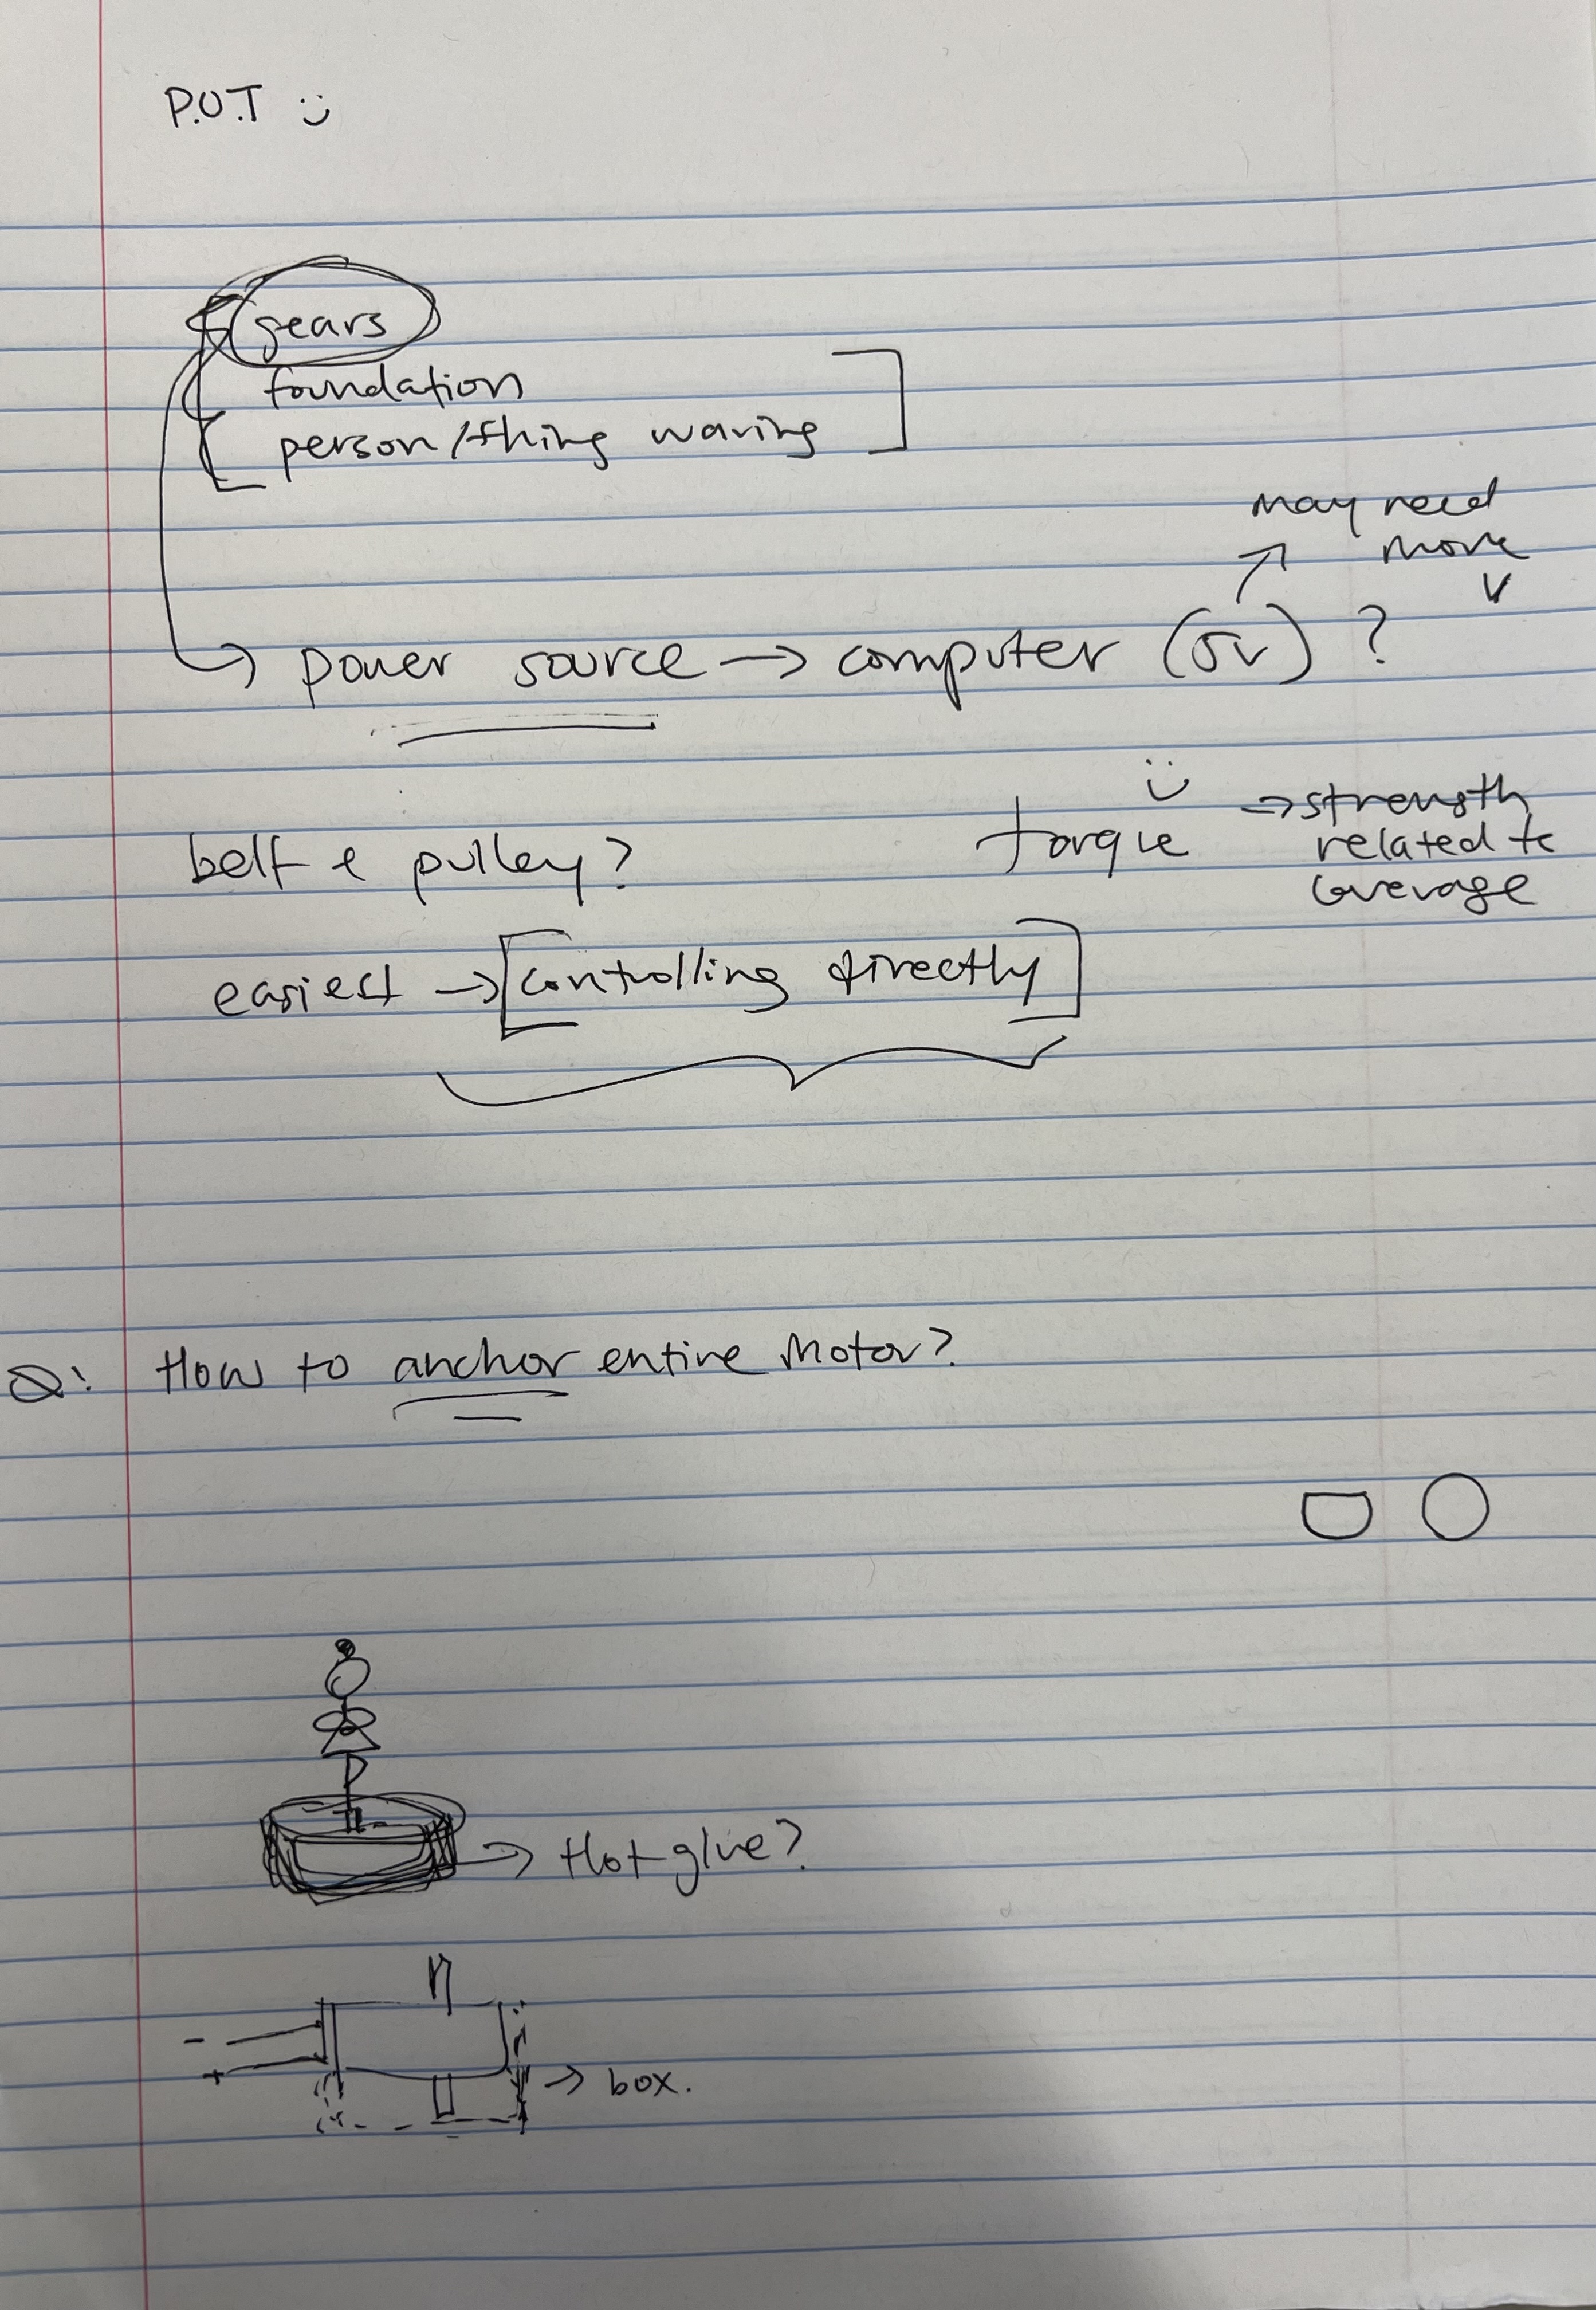 P.O.T :)
gears
foundation
person/thing waving
may need
more
V
→ power source → computer (5V) ?
belt & pulley?
torque
→ strength
related to
leverage
easiest → [controlling directly]
Q: How to anchor entire motor?
→ Hot glue?
-
+
→ box.